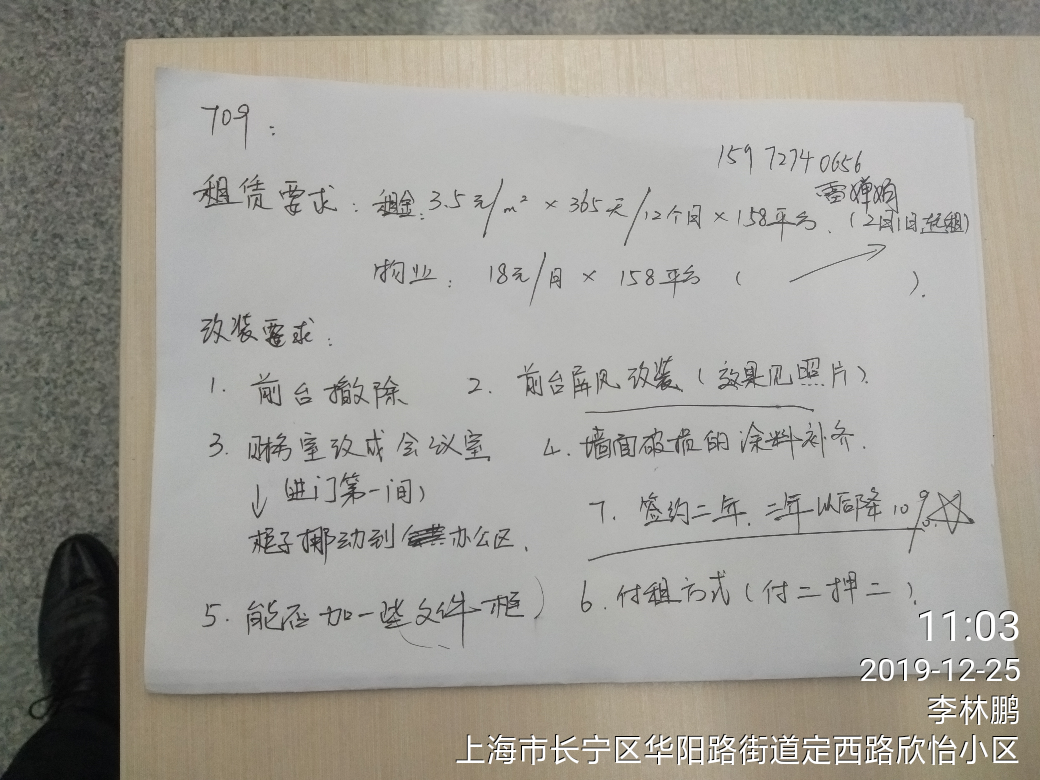 709：
159 7274 0656
租赁要求：租金：3.5元/m² × 365天/12个月 × 158平台．（2月1日起租）
物业：18元/月 × 158平台（ ）．
改装要求：
1. 前台撤除 2. 前台屏风改装（效果见照片）．
3. 财务室改成会议室 4. 墙面破损的涂料补齐．
↓（进门第一间）
7. 签约二年，二年以后降10%☆
柜子挪动到办公区．
5. 能否加一些文件柜） 6. 付租方式（付二押二）．
11:03
2019-12-25
李林鹏
上海市长宁区华阳路街道定西路欣怡小区